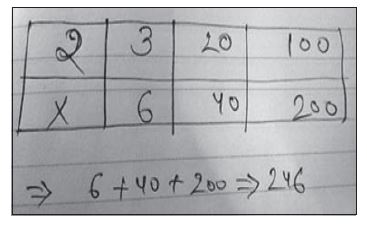 2 3 20 100
X 6 40 200
⇒ 6 + 40 + 200 ⇒ 246